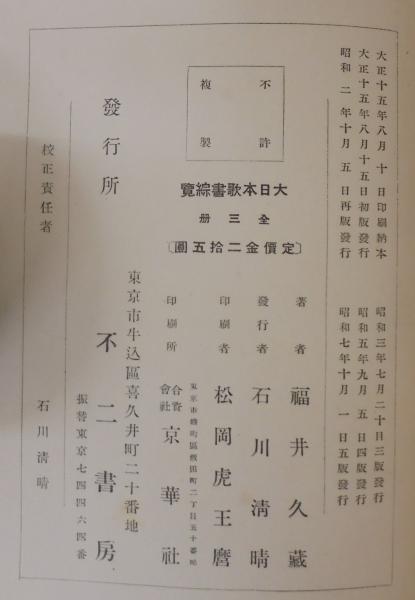 大正十五年八月十日印刷納本
大正十五年八月十五日初版發行
昭和二年十月五日再版發行
昭和三年七月二十日三版發行
昭和五年九月五日四版發行
昭和七年十月一日五版發行
不許
複製
大日本歌書綜覽
全三册
〔定價金二拾五圓〕
著者 福井久藏
發行者 石川淸晴
印刷者 松岡虎王麿
東京市麴町區飯田町二丁目五十番地
印刷所 合資會社 京華社
發行所
東京市牛込區喜久井町二十番地
不二書房
振替東京七四四六四番
校正責任者 石川淸晴